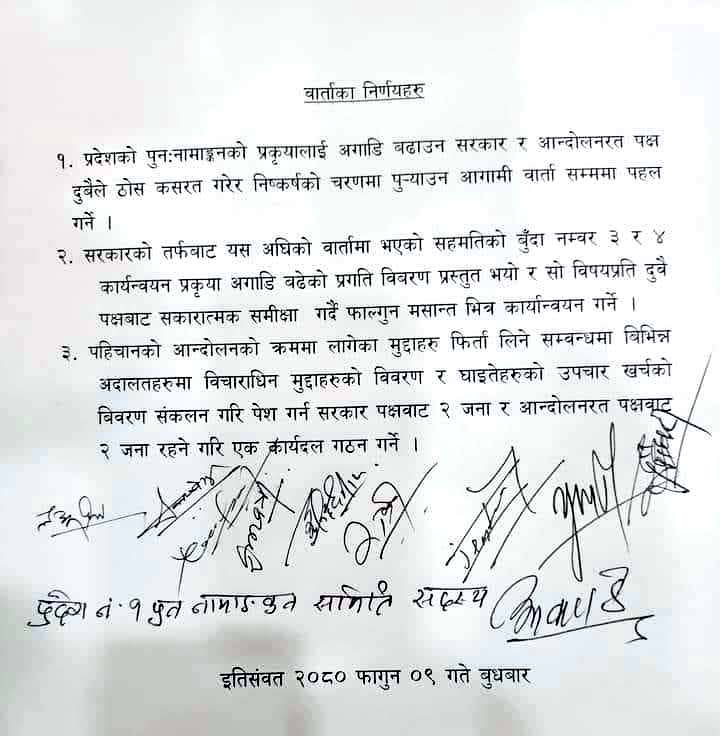 वार्ताका निर्णयहरु
१. प्रदेशको पुन:नामाङ्कनको प्रकृयालाई अगाडि बढाउन सरकार र आन्दोलनरत पक्ष
दुबैले ठोस कसरत गरेर निष्कर्षको चरणमा पुऱ्याउन आगामी वार्ता सम्ममा पहल
गर्ने ।
२. सरकारको तर्फबाट यस अघिको वार्तामा भएको सहमतिको बुँदा नम्वर ३ र ४
कार्यन्वयन प्रकृया अगाडि वढेको प्रगति विबरण प्रस्तुत भयो र सो विषयप्रति दुवै
पक्षबाट सकारात्मक समीक्षा गर्दै फाल्गुन मसान्त भित्र कार्यान्वयन गर्ने ।
३. पहिचानको आन्दोलनको क्रममा लागेका मुद्दाहरु फिर्ता लिने सम्वन्धमा बिभिन्न
अदालतहरुमा विचाराधिन मुद्दाहरुको विवरण र घाइतेहरुको उपचार खर्चको
विवरण संकलन गरि पेश गर्न सरकार पक्षवाट २ जना र आन्दोलनरत पक्षवाट
२ जना रहने गरि एक कार्यदल गठन गर्ने ।
प्रदेश नं. १ पुन नामाङकन समिति सदस्य
इतिसंवत २०८० फागुन ०९ गते बुधबार